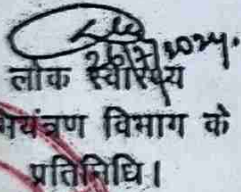 26/7/2024.
लोक स्वास्थ्य
भियंत्रण विभाग के
प्रतिनिधि।